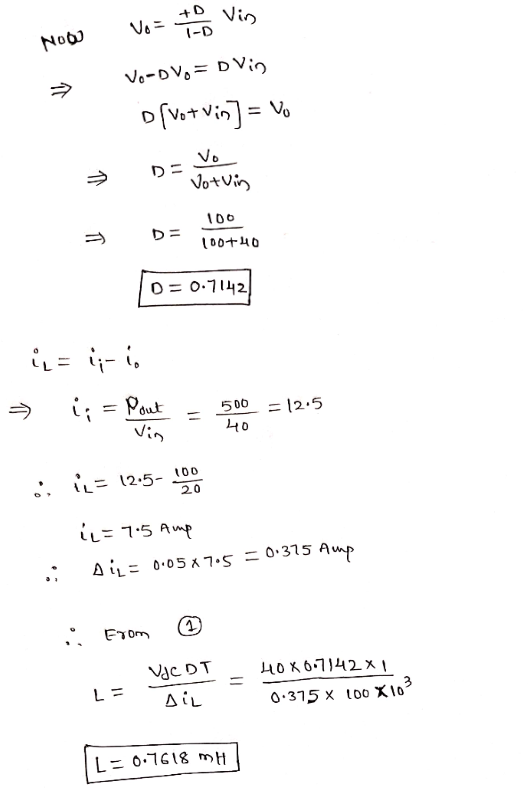 Now V₀ = +D/1-D Vin
⇒ V₀-DV₀ = DVin
D[V₀+Vin] = V₀
⇒ D = V₀/V₀+Vin
⇒ D = 100/100+40
D = 0.7142
iL = ii - i₀
⇒ ii = Pout/Vin = 500/40 = 12.5
∴ iL = 12.5 - 100/20
iL = 7.5 Amp
∴ ΔiL = 0.05 x 7.5 = 0.375 Amp
∴ From ①
L = Vdc DT/ΔiL = 40 x 0.7142 x 1/0.375 x 100 x 10³
L = 0.7618 mH